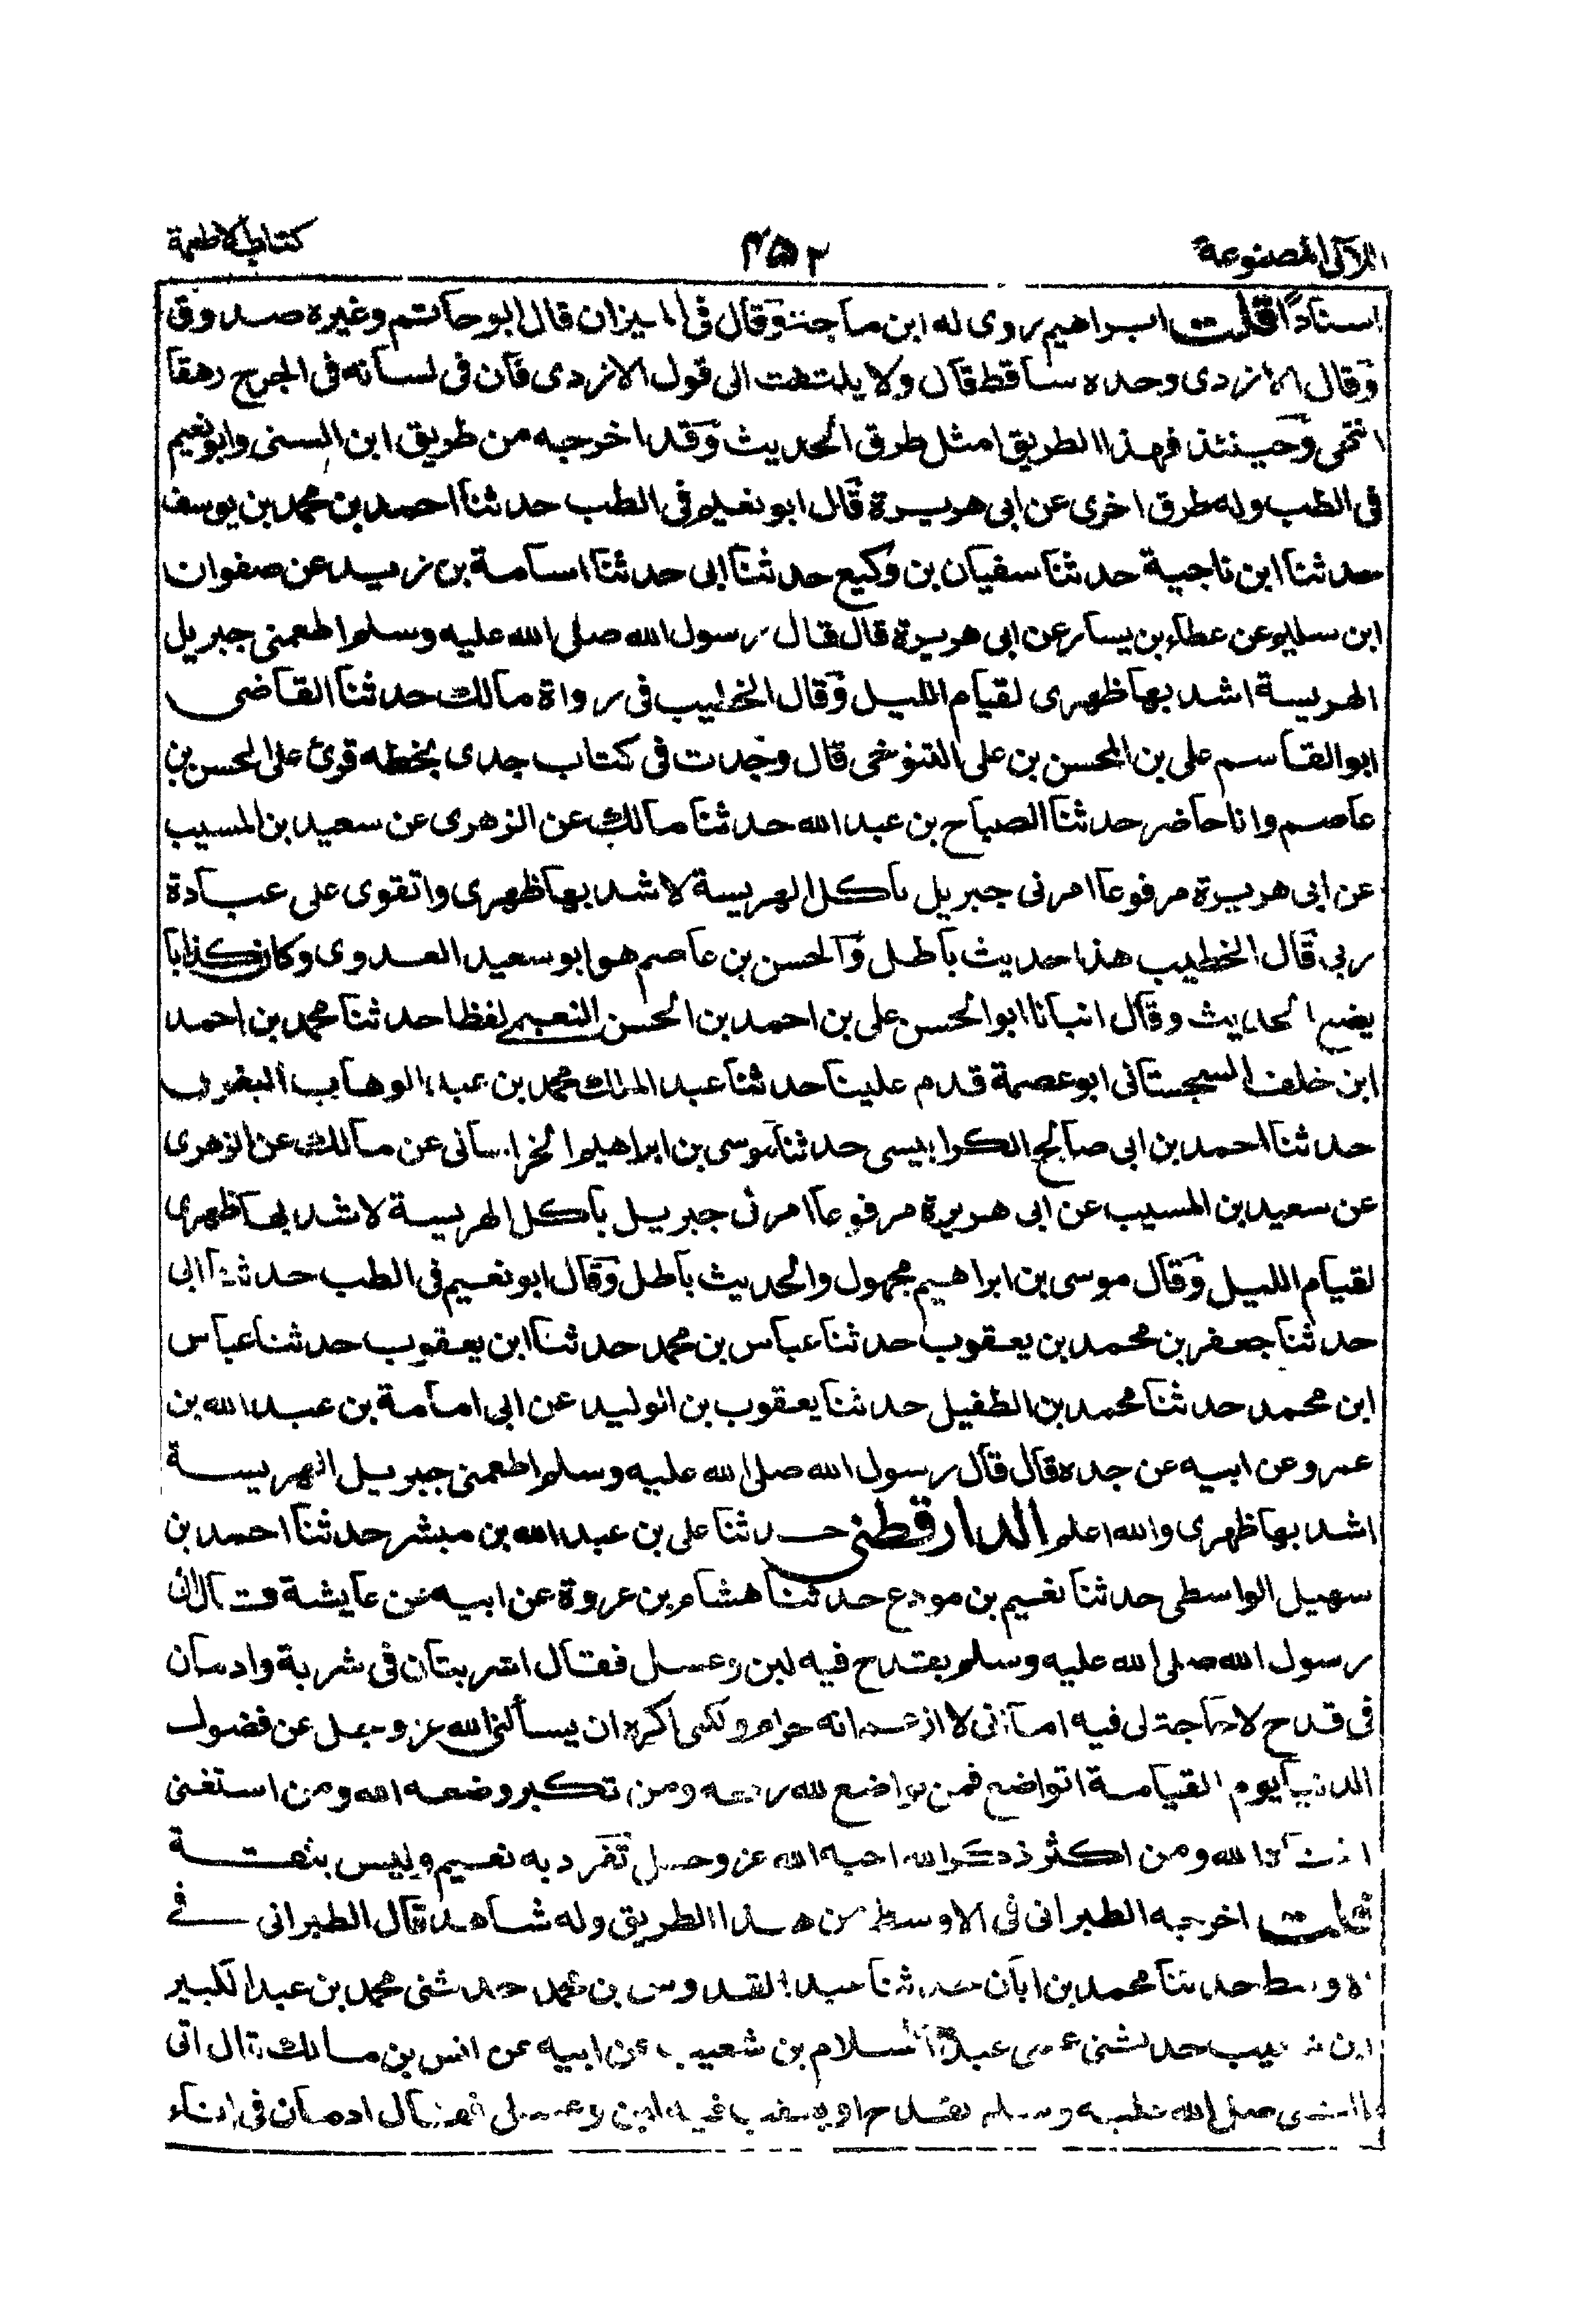 اللآلى المصنوعة
٤٥٢
كتاب الاطعمة
اسنادا قلت ابراهيم روى له ابن ماجة وقال فى الميزان قال ابوحاتم وغيره صدوق
وقال الازدى وحده ساقط قال ولا يلتفت الى قول الازدى فان فى لسانه فى الجرح رهقا
انتهى وحينئذ فهذا الطريق امثل طرق الحديث وقد اخرجه من طريق ابن السنى وابونعيم
فى الطب وله طرق اخرى عن ابى هريرة قال ابونعيم فى الطب حدثنا احمد بن محمد بن يوسف
حدثنا ابن ناجية حدثنا سفيان بن وكيع حدثنا ابى حدثنا اسامة بن زيد عن صفوان
ابن سليم عن عطاء بن يسار عن ابى هريرة قال قال رسول الله صلى الله عليه وسلم اطعمنى جبريل
الهريسة اشد بها ظهرى لقيام الليل وقال الخطيب فى رواة مالك حدثنا القاضى
ابوالقاسم على بن المحسن بن على التنوخى قال وجدت فى كتاب جدى بخطه قرئ على الحسن بن
عاصم وانا حاضر حدثنا الصباح بن عبد الله حدثنا مالك عن الزهرى عن سعيد بن المسيب
عن ابى هريرة مرفوعا امرنى جبريل باكل الهريسة لاشد بها ظهرى واتقوى على عبادة
ربى قال الخطيب هذا حديث باطل والحسن بن عاصم هو ابوسعيد العدوى وكان كذابا
يضع الحديث وقال انبانا ابوالحسن على بن احمد بن الحسن النعيمى لفظا حدثنا محمد بن احمد
ابن خلف السجستانى ابوعصمة قدم علينا حدثنا عبد الملك محمد بن عبد الوهاب البغوى
حدثنا احمد بن ابى صالح الكرابيسى حدثنا موسى بن ابراهيم الخراسانى عن مالك عن الزهرى
عن سعيد بن المسيب عن ابى هريرة مرفوعا امرنى جبريل باكل الهريسة لاشد بها ظهرى
لقيام الليل وقال موسى بن ابراهيم مجهول والحديث باطل وقال ابونعيم فى الطب حدثنا ابى
حدثنا جعفر بن محمد بن يعقوب حدثنا عباس بن محمد حدثنا ابن يعقوب حدثنا عباس
ابن محمد حدثنا محمد بن الطفيل حدثنا يعقوب بن الوليد عن ابى امامة بن عبد الله بن
عمرو عن ابيه عن جده قال قال رسول الله صلى الله عليه وسلم اطعمنى جبريل الهريسة
اشد بها ظهرى والله اعلم الدارقطنى حدثنا على بن عبد الله بن مبشر حدثنا احمد بن
سهيل الواسطى حدثنا نعيم بن مودع حدثنا هشام بن عروة عن ابيه عن عايشة قال اتى
رسول الله صلى الله عليه وسلم بقدح فيه لبن وعسل فقال اشربتان فى شربة وادمان
فى قدح لا حاجة لى فيه اما انى لا ازعم انه حرام ولكنى اكره ان يسألنى الله عز وجل عن فضول
الدنيا يوم القيامة اتواضع فمن تواضع لله رفعه ومن تكبر وضعه الله ومن استغنى
اغناه الله ومن اكثر ذكر الله احبه الله عز وجل تفرد به نعيم وليس بثقة
قلت اخرجه الطبرانى فى الاوسط من هذا الطريق وله شاهد قال الطبرانى فى
الاوسط حدثنا محمد بن ابان حدثنا عبد القدوس بن محمد حدثنى محمد بن عبد الكبير
ابن شعيب حدثنى عمى عبد السلام بن شعيب عن ابيه عن انس بن مالك قال اتى
النبى صلى الله عليه وسلم بقدح فيه لبن وعسل فقال ادمان فى اناء